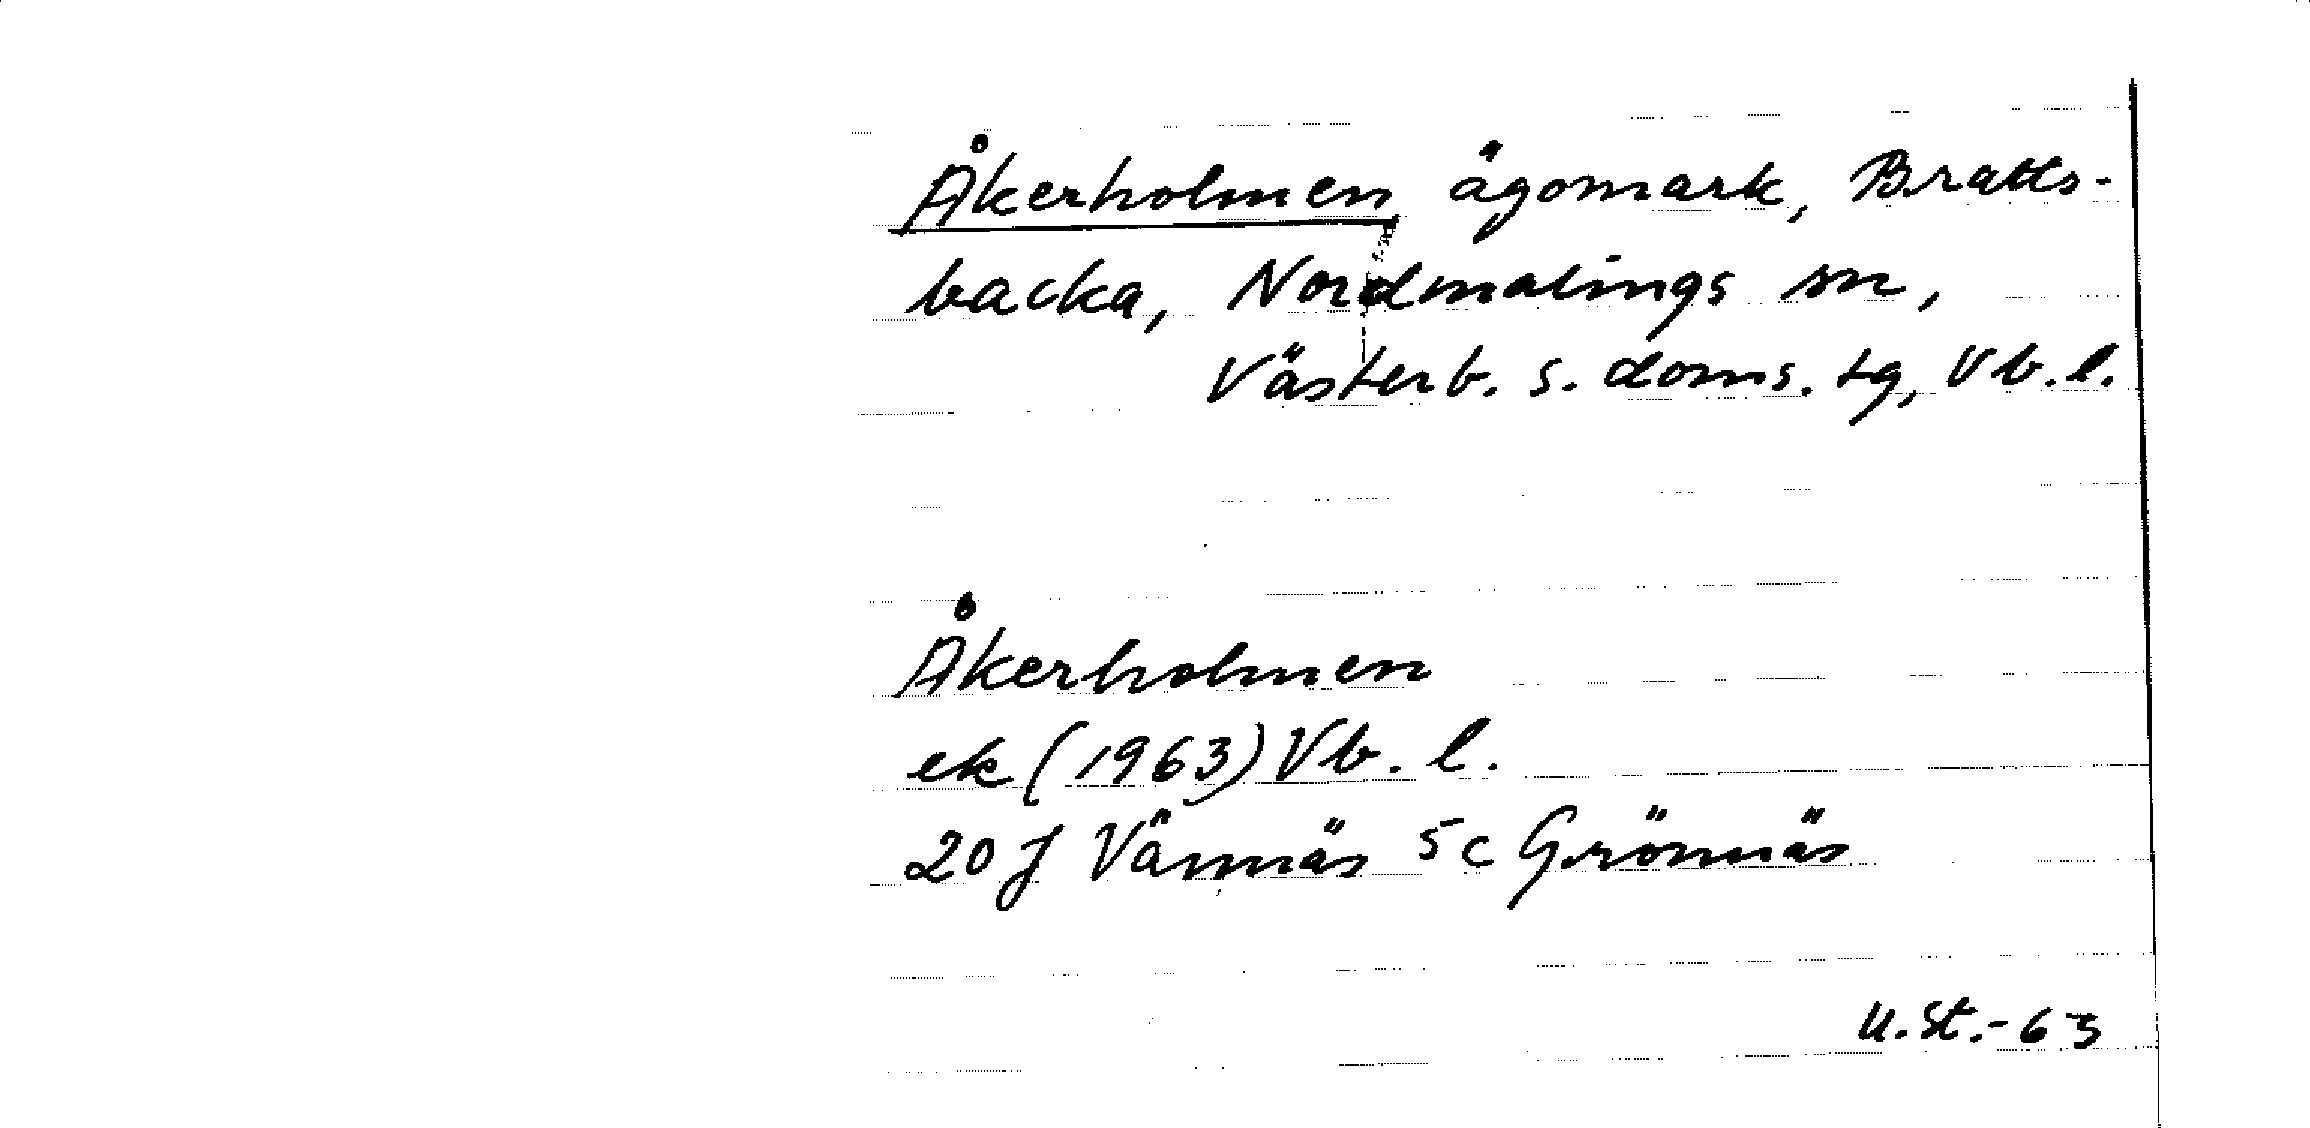 Åkerholmen ägomark, Bratts-
backa, Nordmalings sn,
Västerb. s. doms. tg, Vb. l.
Åkerholmen
ek (1963) Vb. l.
20 J Vännäs 5c Grönnäs
U.St.-63